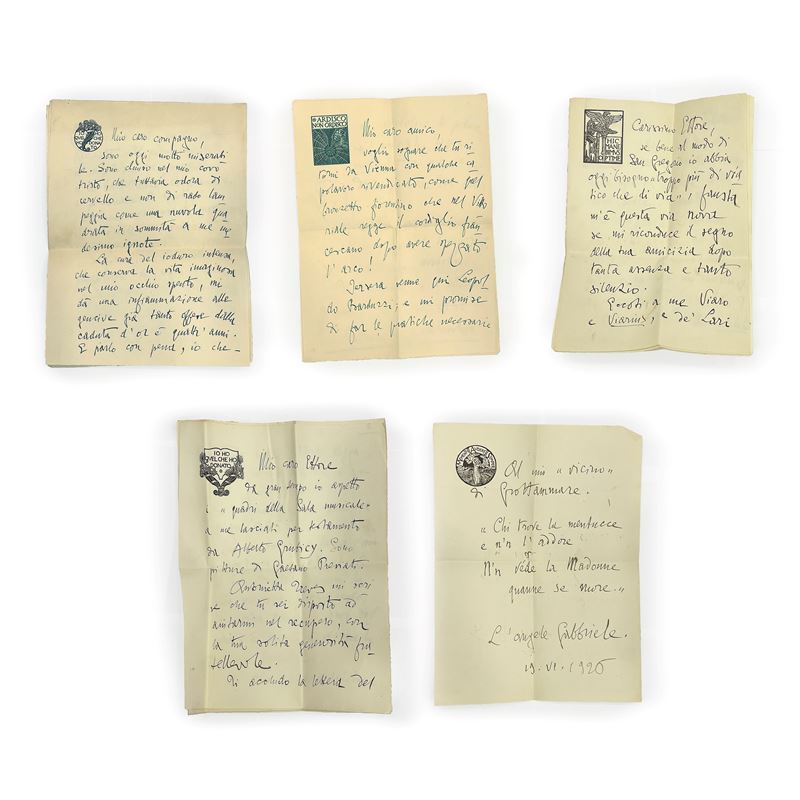 IO HO
QUEL CHE HO
DONATO
Mio caro compagno,
sono oggi molto miserabi-
le. Sono chiuso nel mio covo
tristo, che tuttavia odora di
cervello e non di rado lam-
peggia come una nuvola qua
in sommità a me me-
desimo ignote.
La cura del ioduro intensa,
che conserva la vita imaginosa
nel mio occhio spento, mi
dà una infiammazione alle
gengive già tanto offese dalla
caduta d'or è quattr'anni.
E parlo con pena, io che —
ARDISCO
NON ORDISCO
Mio caro amico,
voglio sognare che tu ri-
torni da Vienna con qualche ca-
polavoro rivendicato, come quel
bronzetto fiorentino che nel Vitto-
riale regge il cordiglio fran-
cescano dopo avere spezzato
l'arco!
Iersera venne qui Leopol-
do Barduzzi; e mi promise
di far le pratiche necessarie
HIC
MANEBIMUS
OPTIME
Carissimo Ettore,
se bene al modo di
San Gregorio io abbia
oggi bisogno troppo più di via-
tico che di via, fausta
m'è questa via nuova
se mi riconduce il segno
della tua amicizia dopo
tanta assenza e tanto
silenzio.
Eccoti a me Viaro
e Viarino, e de' Lari
IO HO
QUEL CHE HO
DONATO
Mio caro Ettore
da gran tempo io aspetto
i "quadri della Sala musicale"
a me lasciati per testamento
da Alberto Grubicy. Sono
pitture di Gaetano Previati.
Antonietta Treves mi scri-
ve che tu sei disposto ad
aiutarmi nel recupero, con
la tua solita generosità fra-
tellevole.
Ti accludo la lettera del
Al mio "vicino"
di Grottammare.
"Chi trove la mentucce
e n'n l'addore
N'n vede la Madonne
quanne se more."
L'angele Gabbriele.
19. VI. 1926